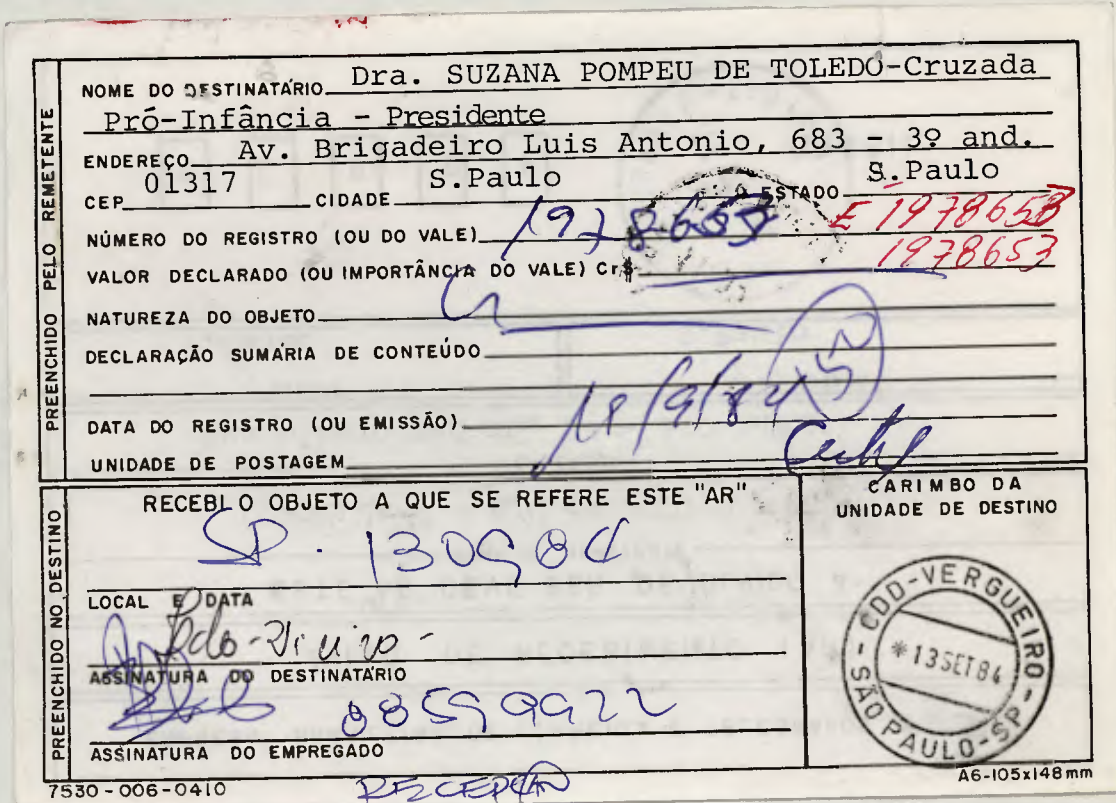 PREENCHIDO PELO REMETENTE
NOME DO DESTINATÁRIO Dra. SUZANA POMPEU DE TOLEDO-Cruzada
Pró-Infância - Presidente
ENDEREÇO Av. Brigadeiro Luis Antonio, 683 - 3º and.
CEP 01317 CIDADE S.Paulo ESTADO S.Paulo
NÚMERO DO REGISTRO (OU DO VALE) 1978653 E 1978653
VALOR DECLARADO (OU IMPORTÂNCIA DO VALE) Cr.$ 1978653
NATUREZA DO OBJETO
DECLARAÇÃO SUMÁRIA DE CONTEÚDO
DATA DO REGISTRO (OU EMISSÃO)
UNIDADE DE POSTAGEM
PREENCHIDO NO DESTINO
RECEBI O OBJETO A QUE SE REFERE ESTE "AR"
SP. 130984
LOCAL E DATA
ASSINATURA DO DESTINATÁRIO
08599922
ASSINATURA DO EMPREGADO
CARIMBO DA
UNIDADE DE DESTINO
CDD-VERGUEIRO
*13 SET 84
SÃO PAULO-SP
7530-006-0410
A6-105x148mm